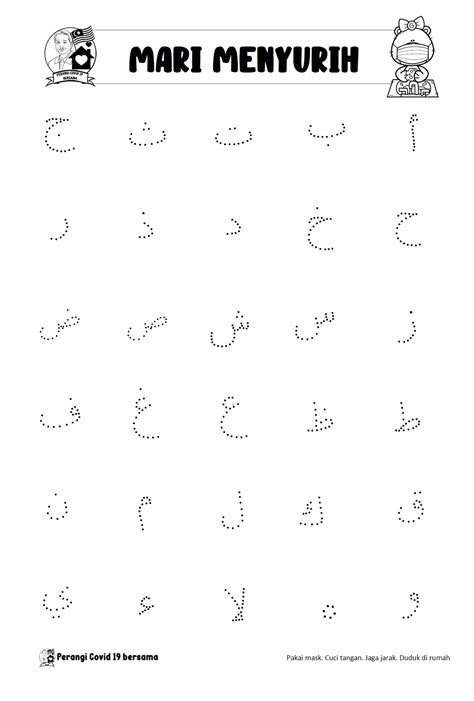 MARI MENYURIH
PERANGI COVID 19
BERSAMA
أ ب ت ث ج
ح خ د ذ ر
ز س ش ص ض
ط ظ ع غ ف
ق ك ل م ن
و ه لا ء ي
Perangi Covid 19 bersama
Pakai mask. Cuci tangan. Jaga jarak. Duduk di rumah